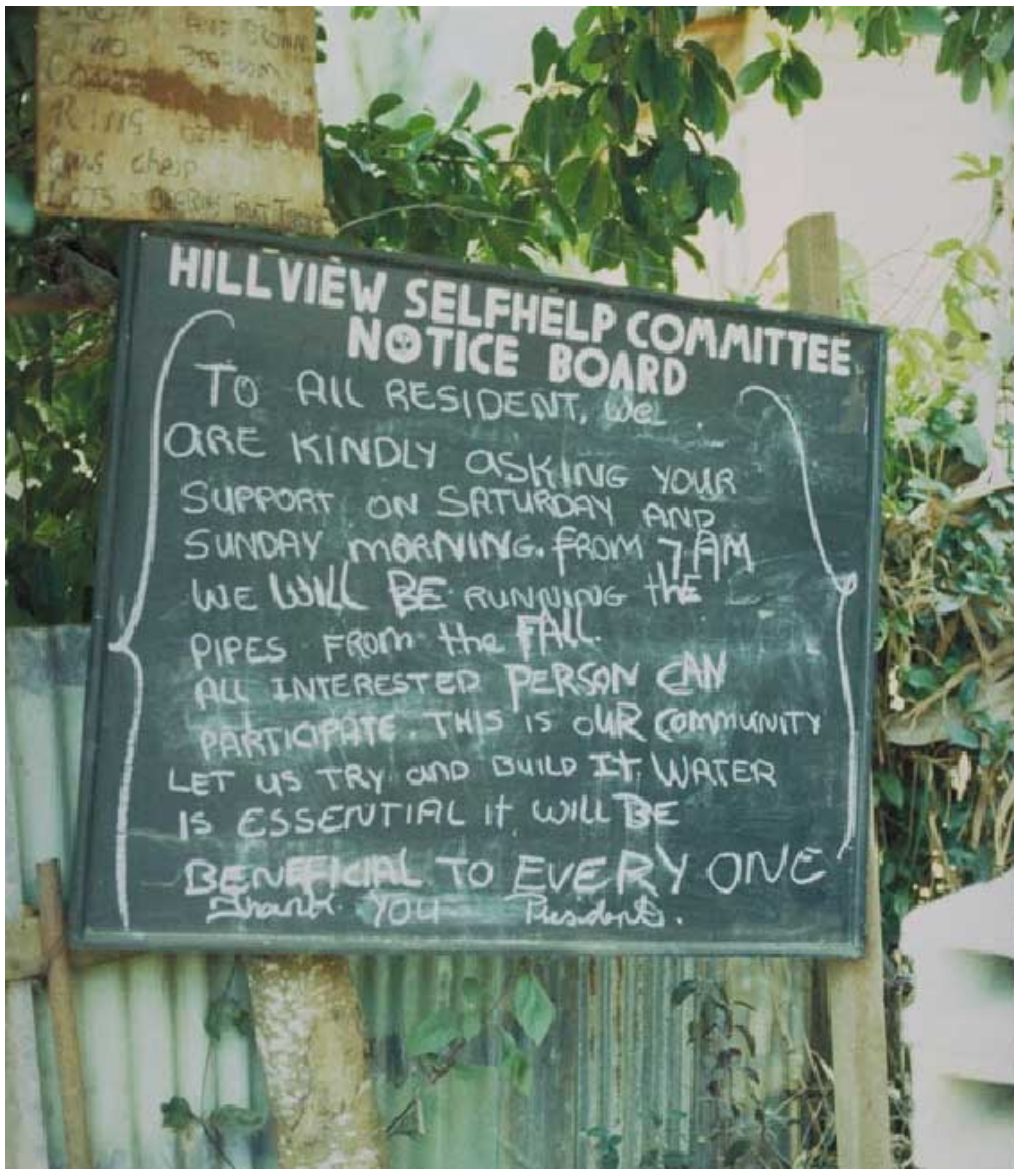 AND BROWN
TWO
RING
cheap
HILLVIEW SELFHELP COMMITTEE
NOTICE BOARD
TO All RESIDENT, We
ARE KINDLY asKING YOUR
SUPPORT ON SATURDAY AND
SUNDAY MORNING. FROM 7 AM
WE WILL BE RUNNING thE
PIPES FROM the FALL.
ALL INTERESTED PERSON CAN
PARTICIPATE. THIS IS OUR COMMUNITY
LET US TRY and BUILD It. WATER
IS ESSENTIAL It WILL BE
BENEFICIAL TO EVERY ONE
Thank YOU President.